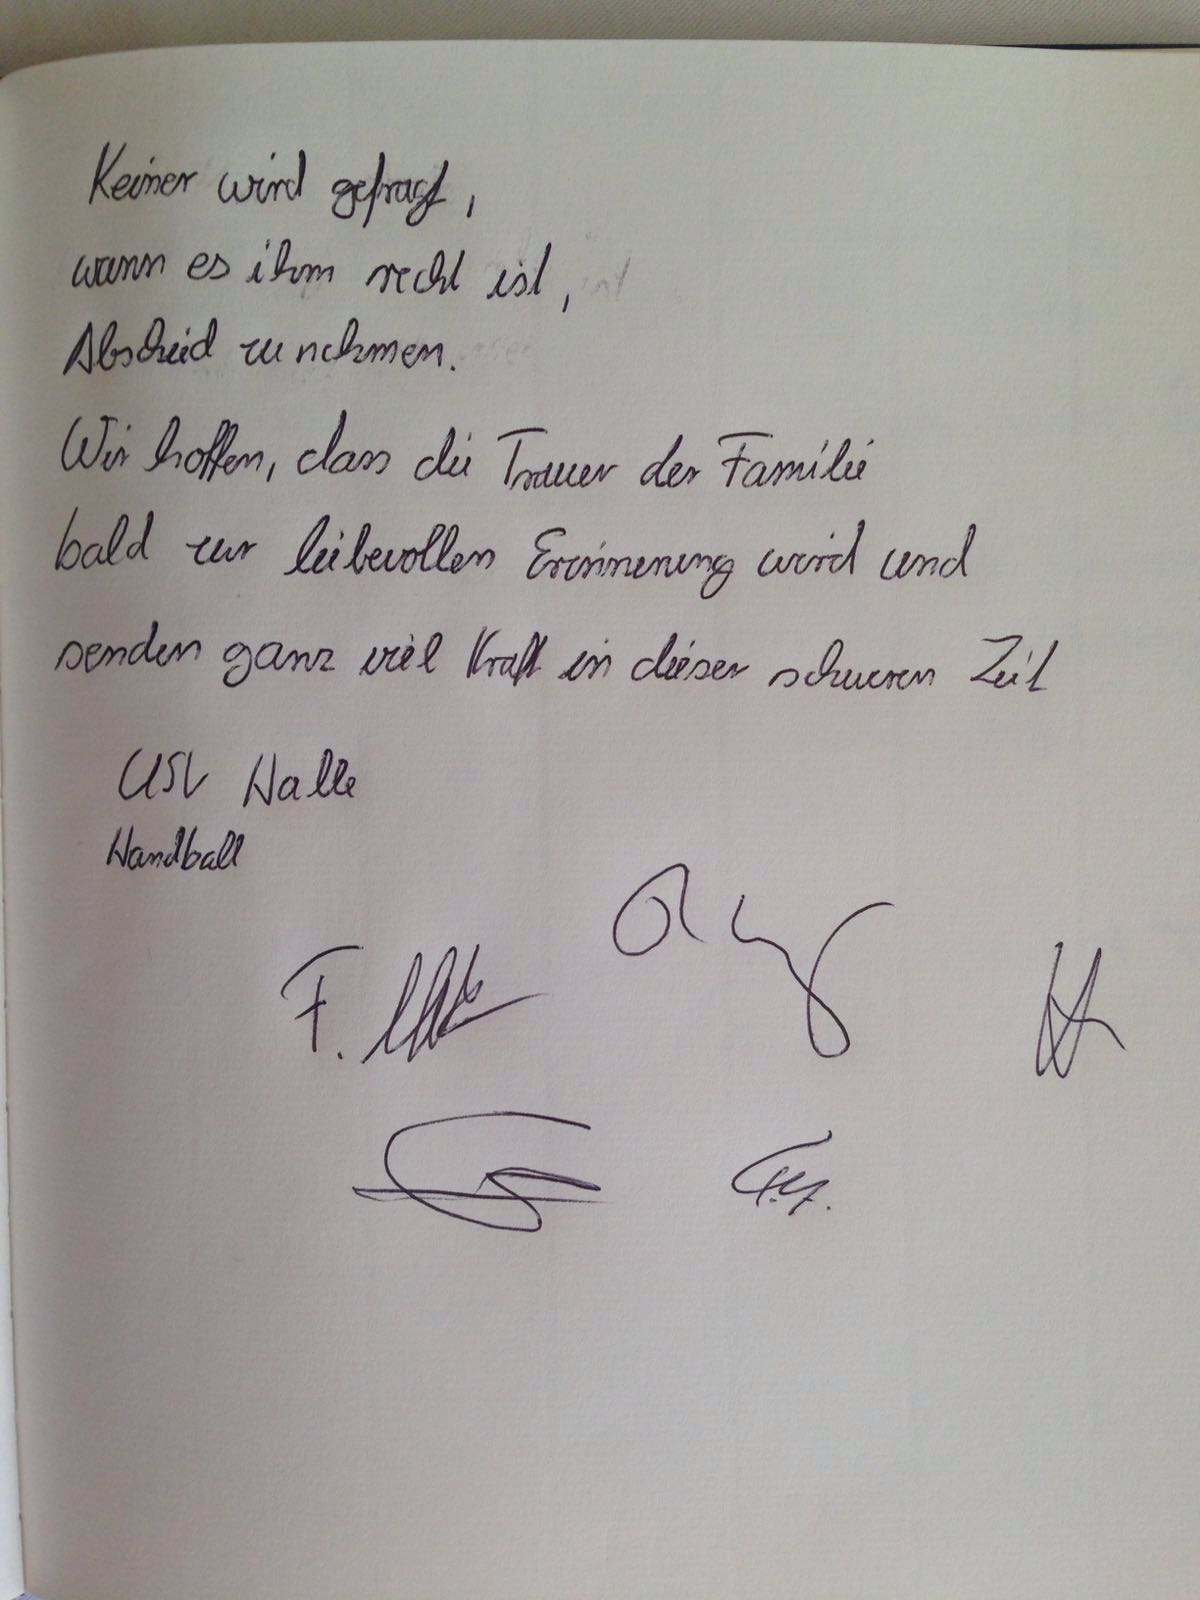 Keiner wird gefragt,
wann es ihm recht ist,
Abschied zu nehmen.
Wir hoffen, dass die Trauer der Familie
bald zur liebevollen Erinnerung wird und
senden ganz viel Kraft in dieser schweren Zeit
USV Halle
Handball
F.